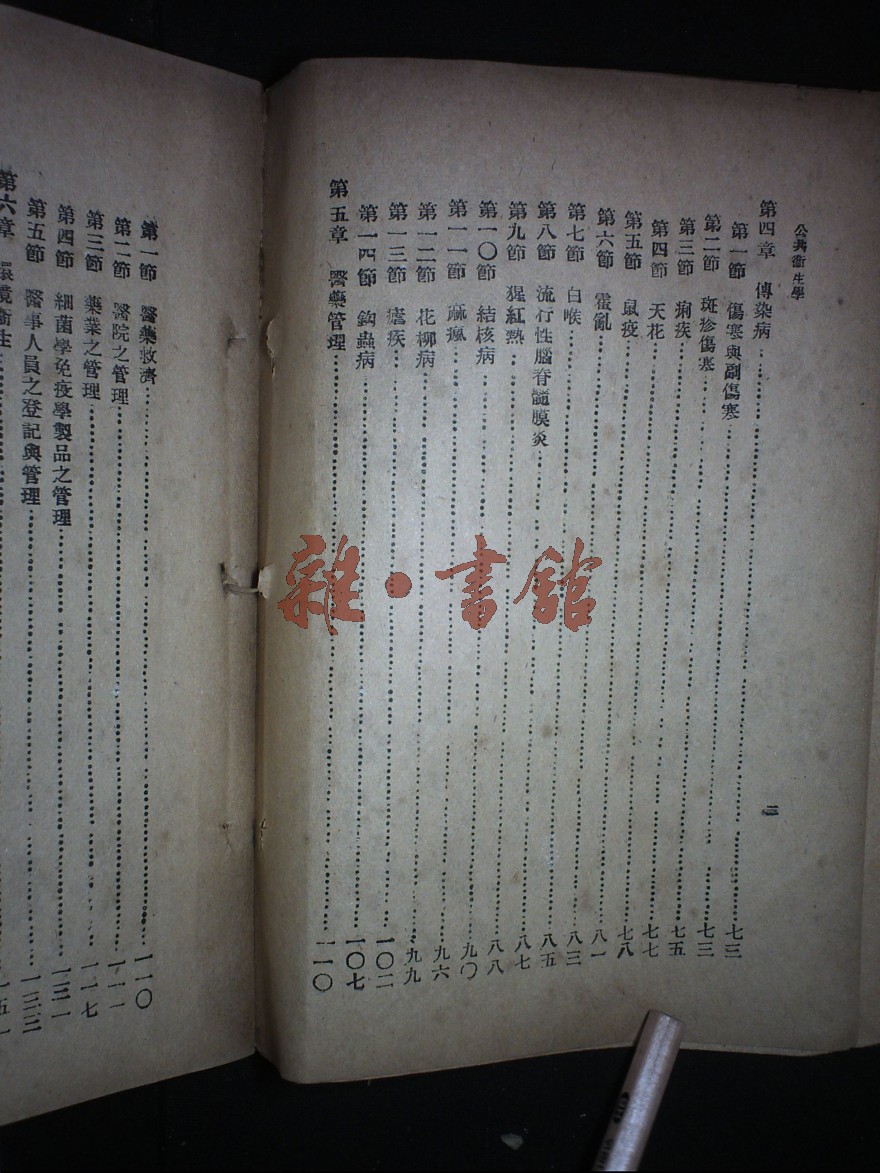 公共衞生學
第四章 傳染病…………七三
第一節 傷寒與副傷寒…………七三
第二節 斑疹傷寒…………七五
第三節 痢疾…………七七
第四節 天花…………七八
第五節 鼠疫…………八一
第六節 霍亂…………八三
第七節 白喉…………八五
第八節 流行性腦脊髓膜炎…………八七
第九節 猩紅熱…………八八
第一〇節 結核病…………九〇
第一一節 麻瘋…………九六
第一二節 花柳病…………九九
第一三節 瘧疾…………一〇二
第一四節 鈎蟲病…………一〇七
第五章 醫藥管理…………一一〇
第一節 醫藥救濟…………一一〇
第二節 醫院之管理…………一一一
第三節 藥業之管理…………一一七
第四節 細菌學免疫學製品之管理…………
第五節 醫事人員之登記與管理…………
第六章 環境衞生…………
雜·書館